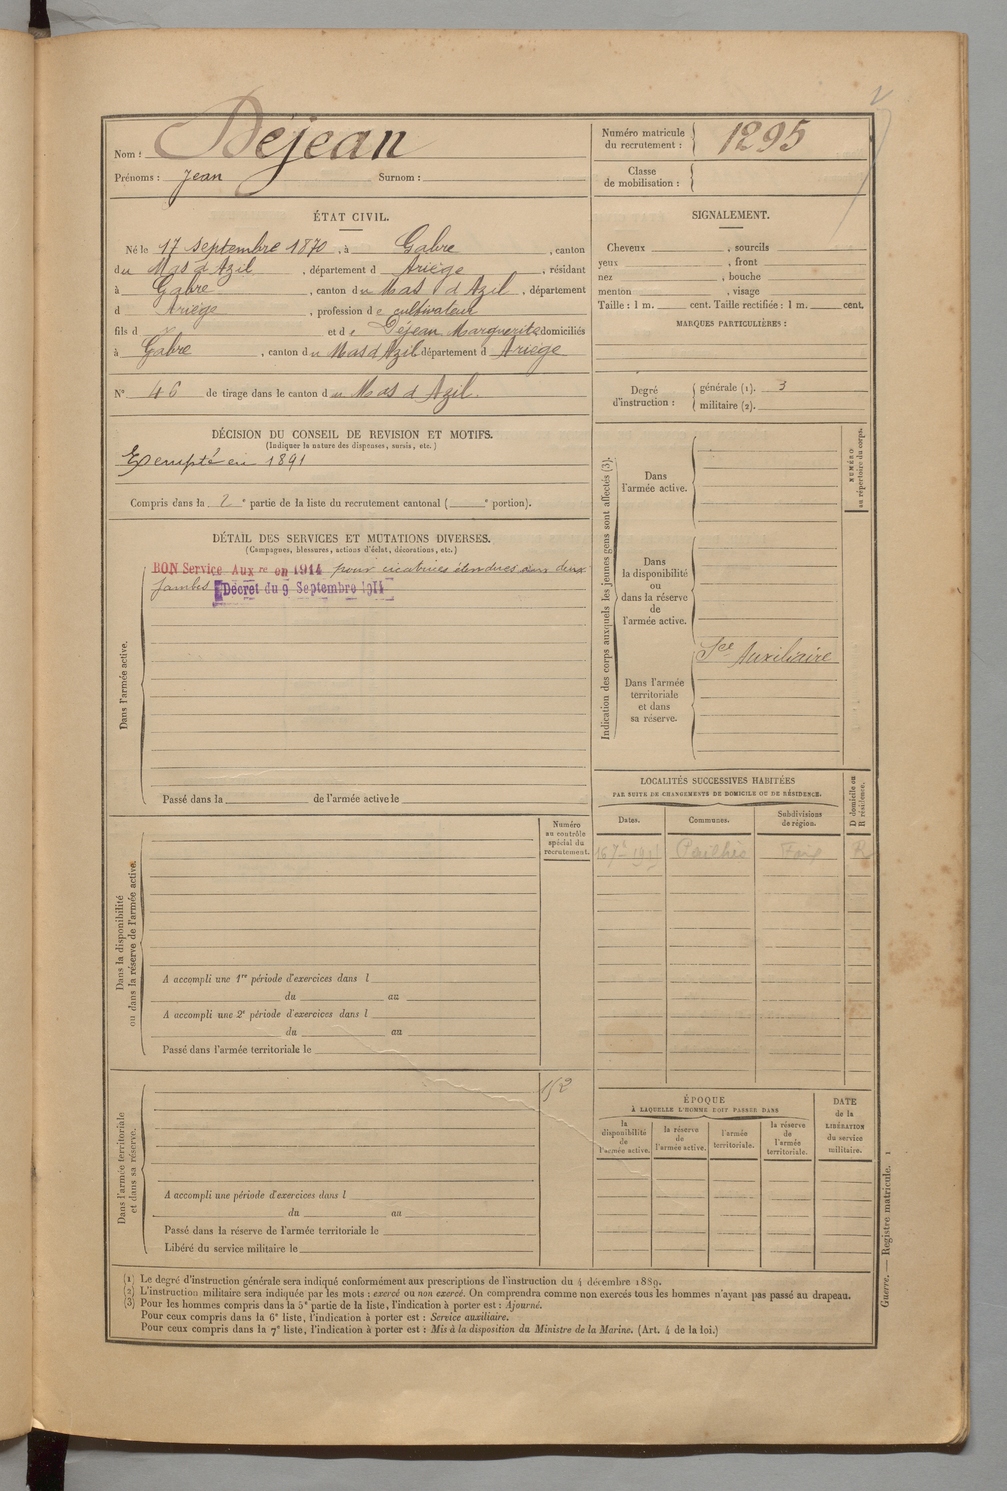 Nom : Déjean
Prénoms : Jean Surnom :
Numéro matricule du recrutement : 1295
Classe de mobilisation :
ÉTAT CIVIL.
Né le 17 septembre 1870, à Gabre, canton
du Mas d'Azil, département d Ariège, résidant
à Gabre, canton du Mas d'Azil, département
d Ariège, profession de cultivateur
fils d et de Déjean Marguerite domiciliés
à Gabre, canton du Mas d'Azil département d Ariège
N° 46 de tirage dans le canton du Mas d'Azil.
SIGNALEMENT.
Cheveux , sourcils
yeux , front
nez , bouche
menton , visage
Taille : 1 m. cent. Taille rectifiée : 1 m. cent.
MARQUES PARTICULIÈRES :
Degré d'instruction : générale (1). 3
militaire (2).
DÉCISION DU CONSEIL DE REVISION ET MOTIFS.
(Indiquer la nature des dispenses, sursis, etc.)
Exempté en 1891
Compris dans la 2e partie de la liste du recrutement cantonal ( e portion).
DÉTAIL DES SERVICES ET MUTATIONS DIVERSES.
(Campagnes, blessures, actions d'éclat, décorations, etc.)
BON Service Aux re en 1914 pour cicatrices étendues aux deux
jambes Décret du 9 Septembre 1914
Dans l'armée active.
Passé dans la de l'armée active le
Indication des corps auxquels les jeunes gens sont affectés (3).
NUMÉRO au répertoire du corps.
Dans
l'armée active.
Dans
la disponibilité
ou
dans la réserve
de
l'armée active.
Sce Auxiliaire
Dans l'armée
territoriale
et dans
sa réserve.
LOCALITÉS SUCCESSIVES HABITÉES
PAR SUITE DE CHANGEMENTS DE DOMICILE OU DE RÉSIDENCE.
D domicile ou R résidence.
Dates. Communes. Subdivisions de région.
Pailhès Foix R
Numéro
au contrôle
spécial du
recrutement.
Dans la disponibilité
ou dans la réserve de l'armée active.
A accompli une 1re période d'exercices dans l
du au
A accompli une 2e période d'exercices dans l
du au
Passé dans l'armée territoriale le
Dans l'armée territoriale
et dans sa réserve.
152
A accompli une période d'exercices dans l
du au
Passé dans la réserve de l'armée territoriale le
Libéré du service militaire le
ÉPOQUE
À LAQUELLE L'HOMME DOIT PASSER DANS
la disponibilité de l'armée active.
la réserve de l'armée active.
l'armée territoriale.
la réserve de l'armée territoriale.
DATE de la LIBÉRATION du service militaire.
(1) Le degré d'instruction générale sera indiqué conformément aux prescriptions de l'instruction du 4 décembre 1889.
(2) L'instruction militaire sera indiquée par les mots : exercé ou non exercé. On comprendra comme non exercés tous les hommes n'ayant pas passé au drapeau.
(3) Pour les hommes compris dans la 5e partie de la liste, l'indication à porter est : Ajourné.
Pour ceux compris dans la 6e liste, l'indication à porter est : Service auxiliaire.
Pour ceux compris dans la 7e liste, l'indication à porter est : Mis à la disposition du Ministre de la Marine. (Art. 4 de la loi.)
Guerre. — Registre matricule. 1